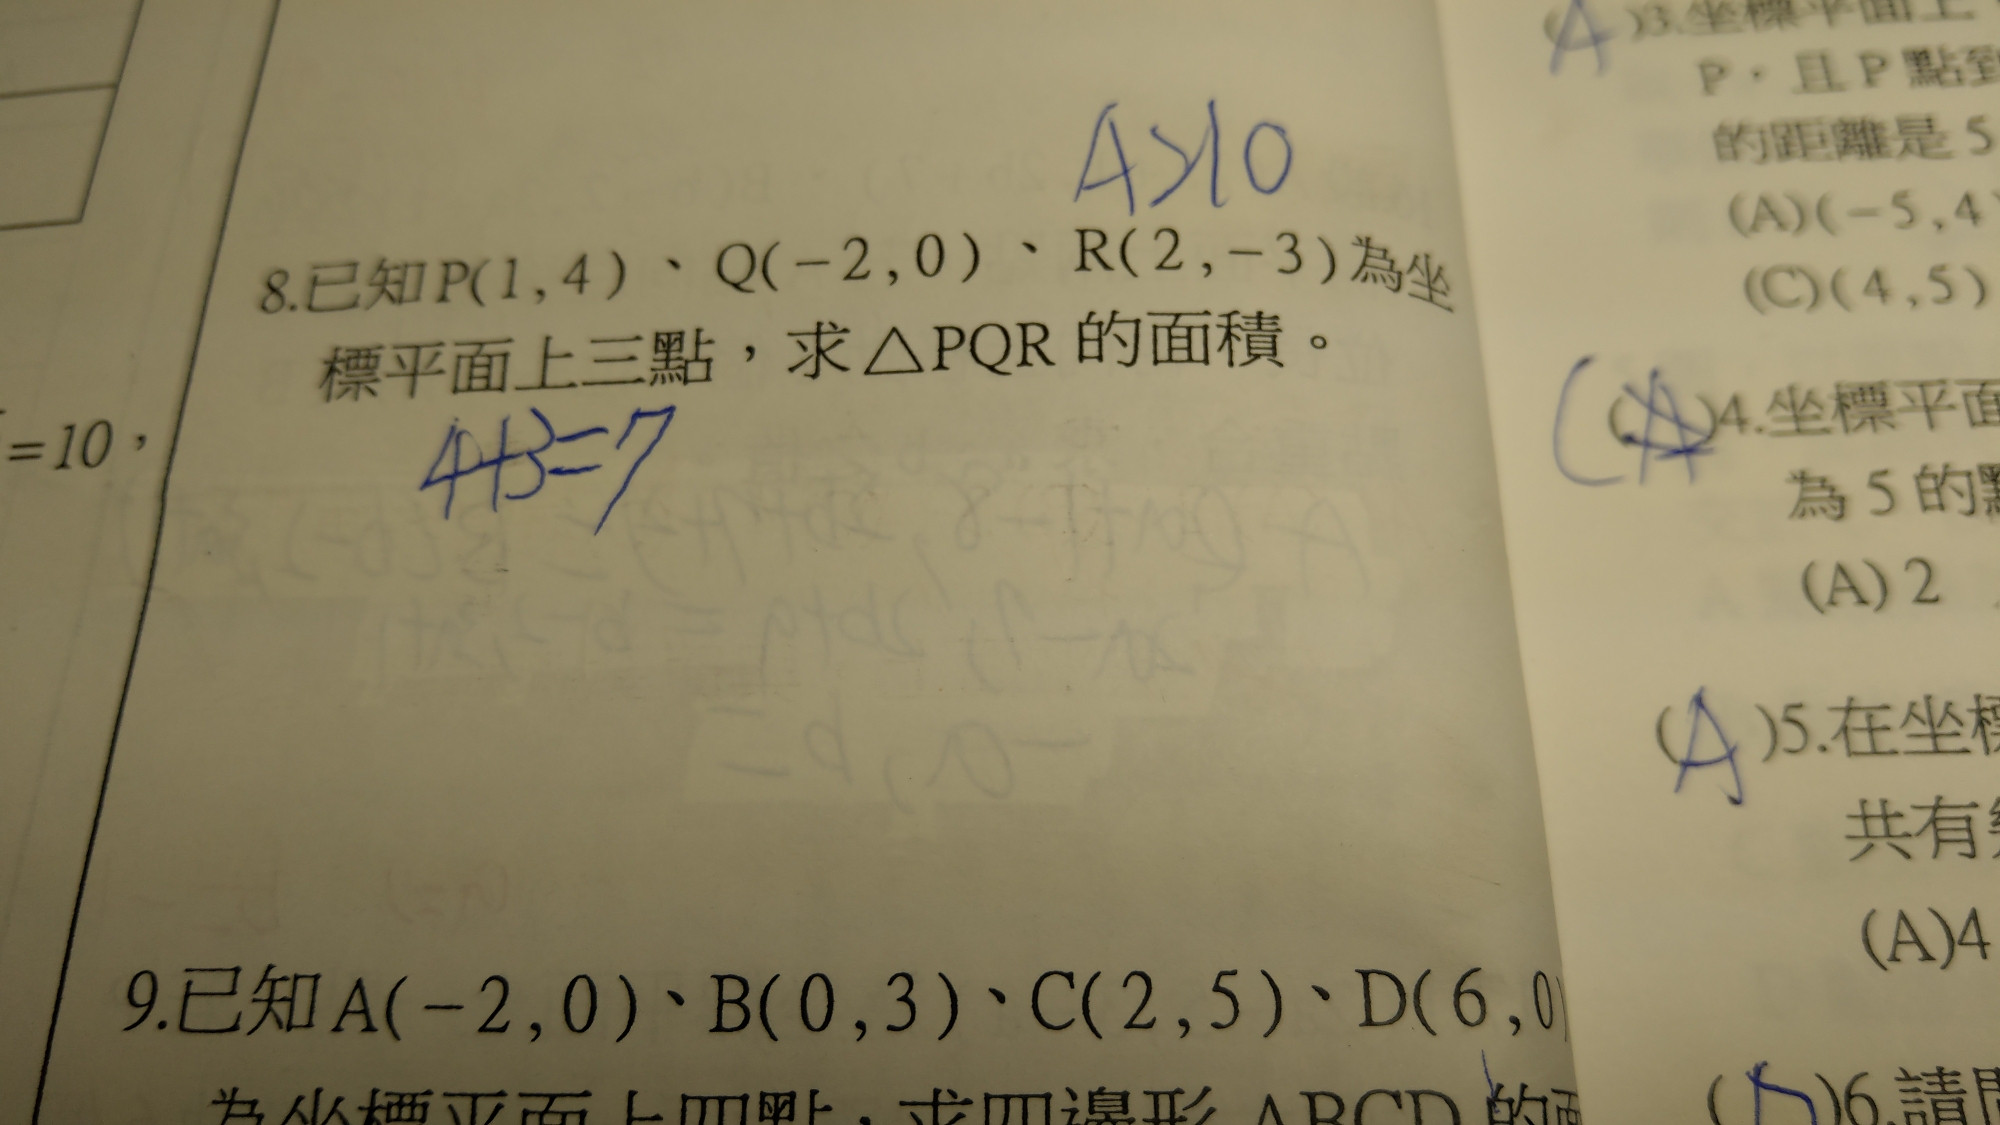 =10，
A>10
8.已知P(1,4)、Q(-2,0)、R(2,-3)為坐
標平面上三點，求△PQR的面積。
4+3=7
9.已知A(-2,0)、B(0,3)、C(2,5)、D(6,0)
為坐標平面上四點，求四邊形ABCD的面
(A)3.坐標平面上
P，且P點到
的距離是5
(A)(-5,4)
(C)(4,5)
(A)4.坐標平面
為5的點
(A)2
(A)5.在坐標
共有幾
(A)4
( )6.請問